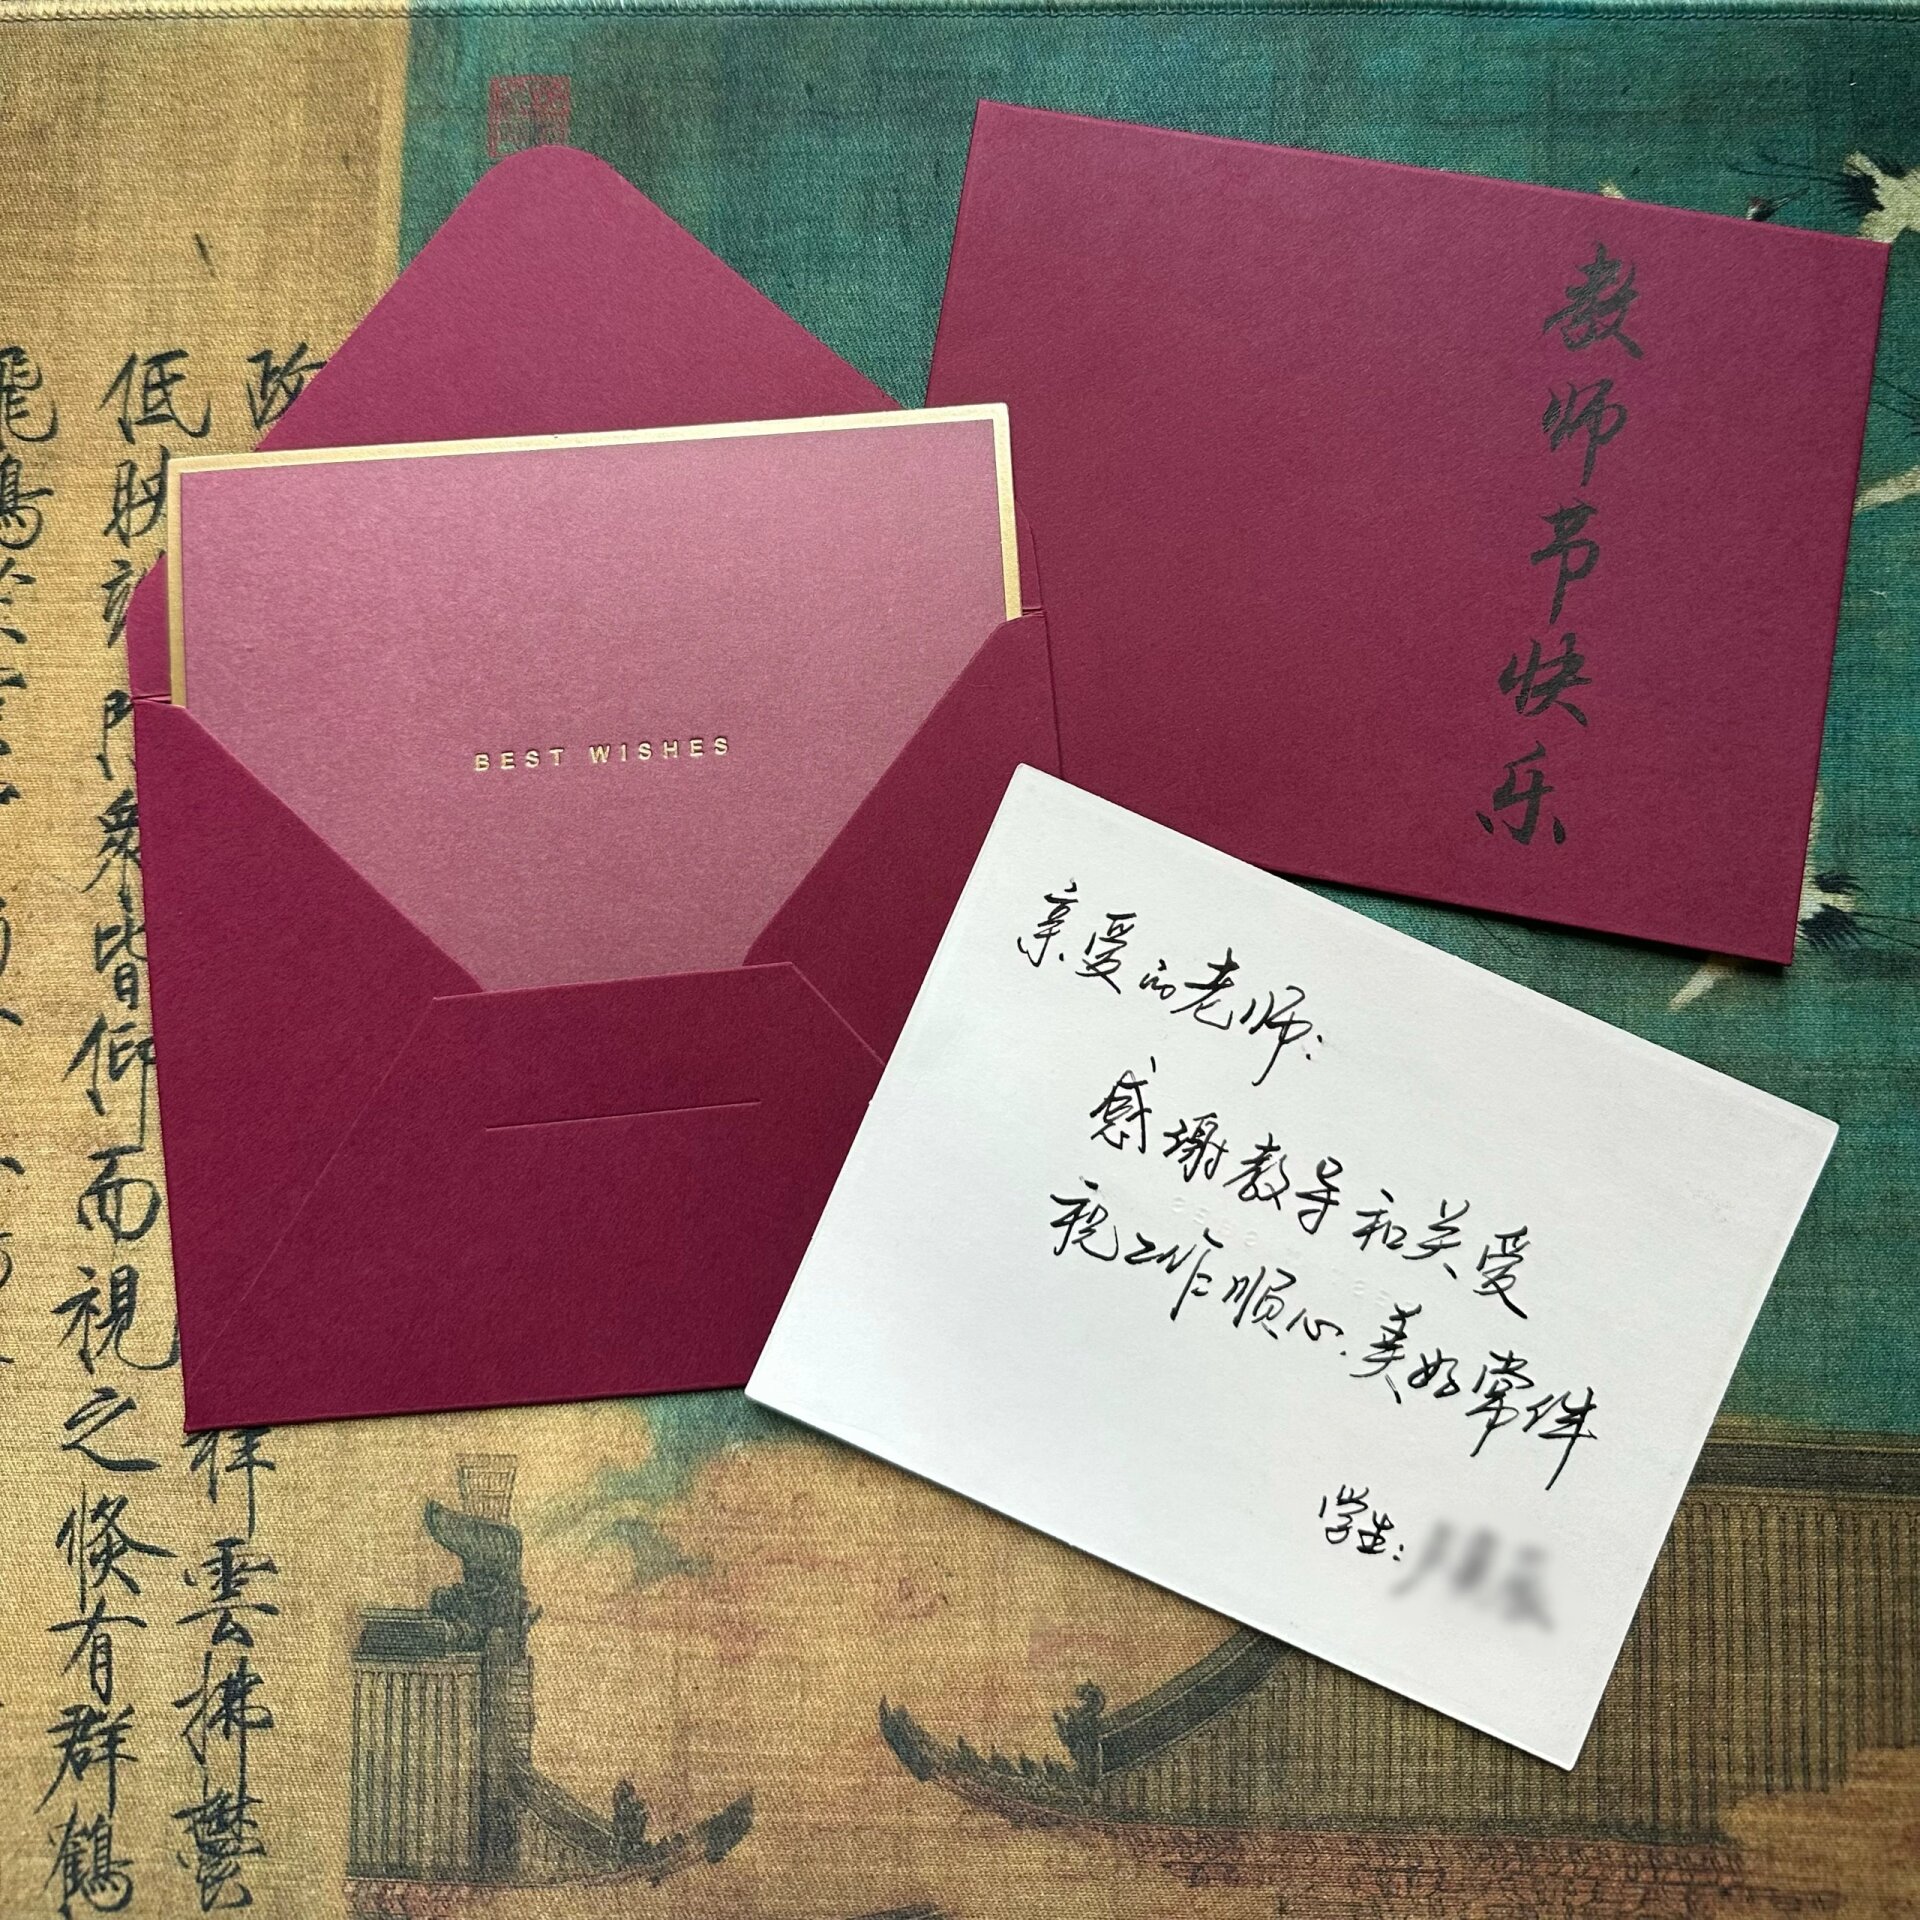 BEST WISHES
教师节快乐
亲爱的老师:
感谢教导和关爱
祝工作顺心.美好常伴
学生:
飛鶴
低映
門
衆皆仰而視之倏有群鶴
祥雲拂鬱